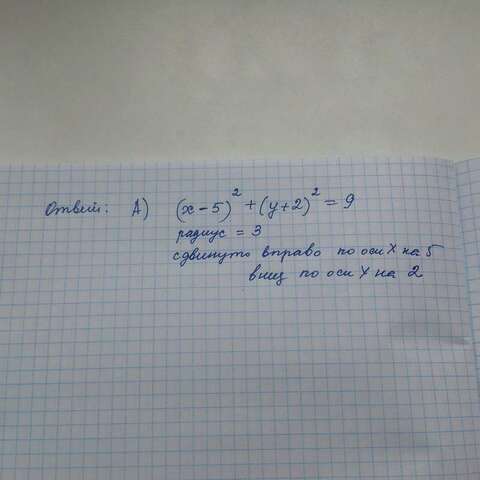 Ответ: А) (x-5)² + (y+2)² = 9
радиус = 3
сдвинуто вправо по оси X на 5
вниз по оси Y на 2